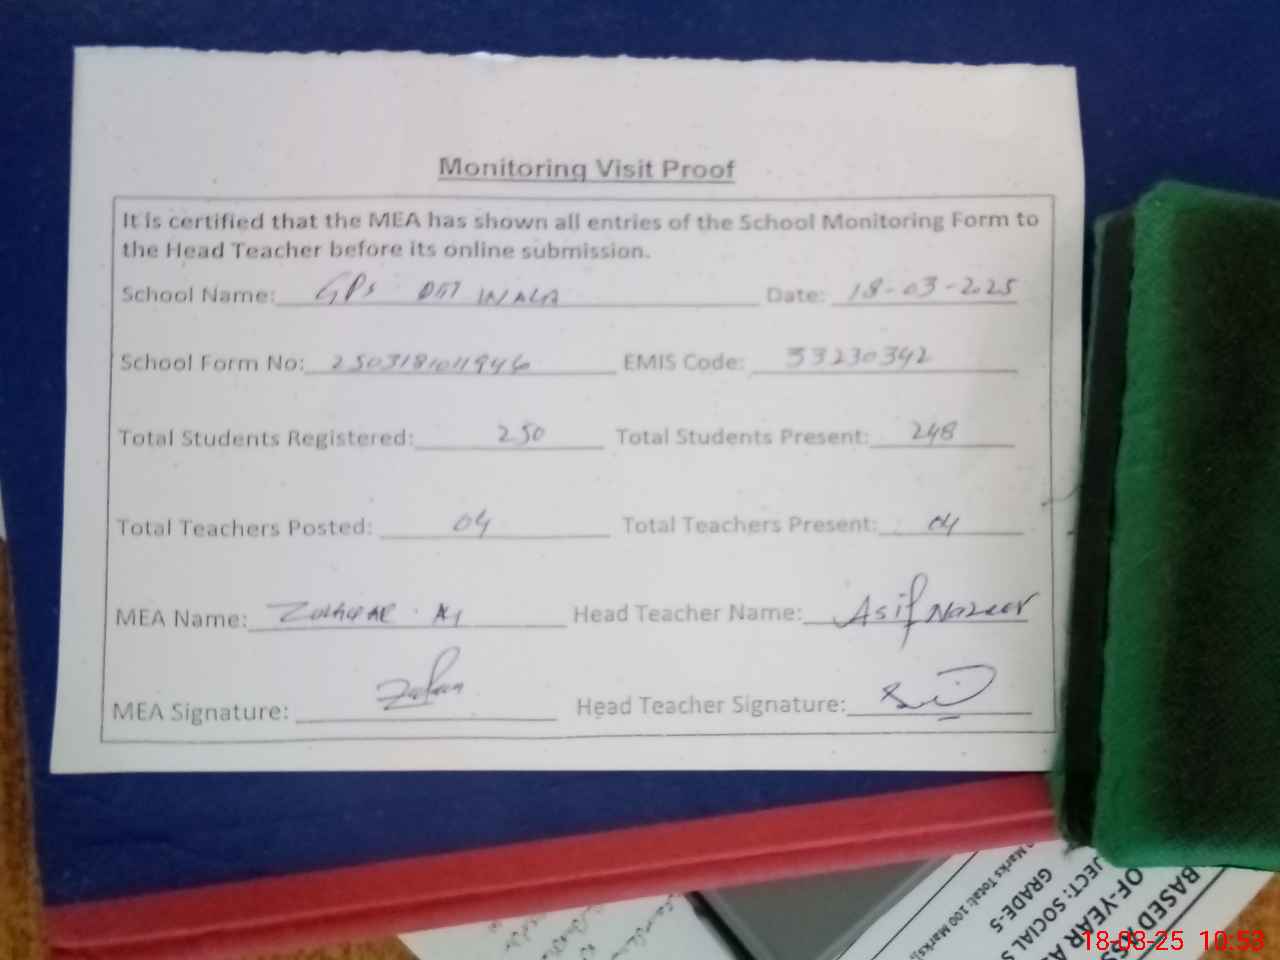 Monitoring Visit Proof
It is certified that the MEA has shown all entries of the School Monitoring Form to
the Head Teacher before its online submission.
School Name: GPS WALA Date: 18-03-2025
School Form No: 2503181011946 EMIS Code: 33230342
Total Students Registered: 250 Total Students Present: 248
Total Teachers Posted: 04 Total Teachers Present: 04
MEA Name: Head Teacher Name: Asif Nazeer
MEA Signature: Head Teacher Signature:
BASED
OF-YEAR
JECT: SOCIAL
GRADE-5
Marks Total: 100 Marks
18-03-25 10:53